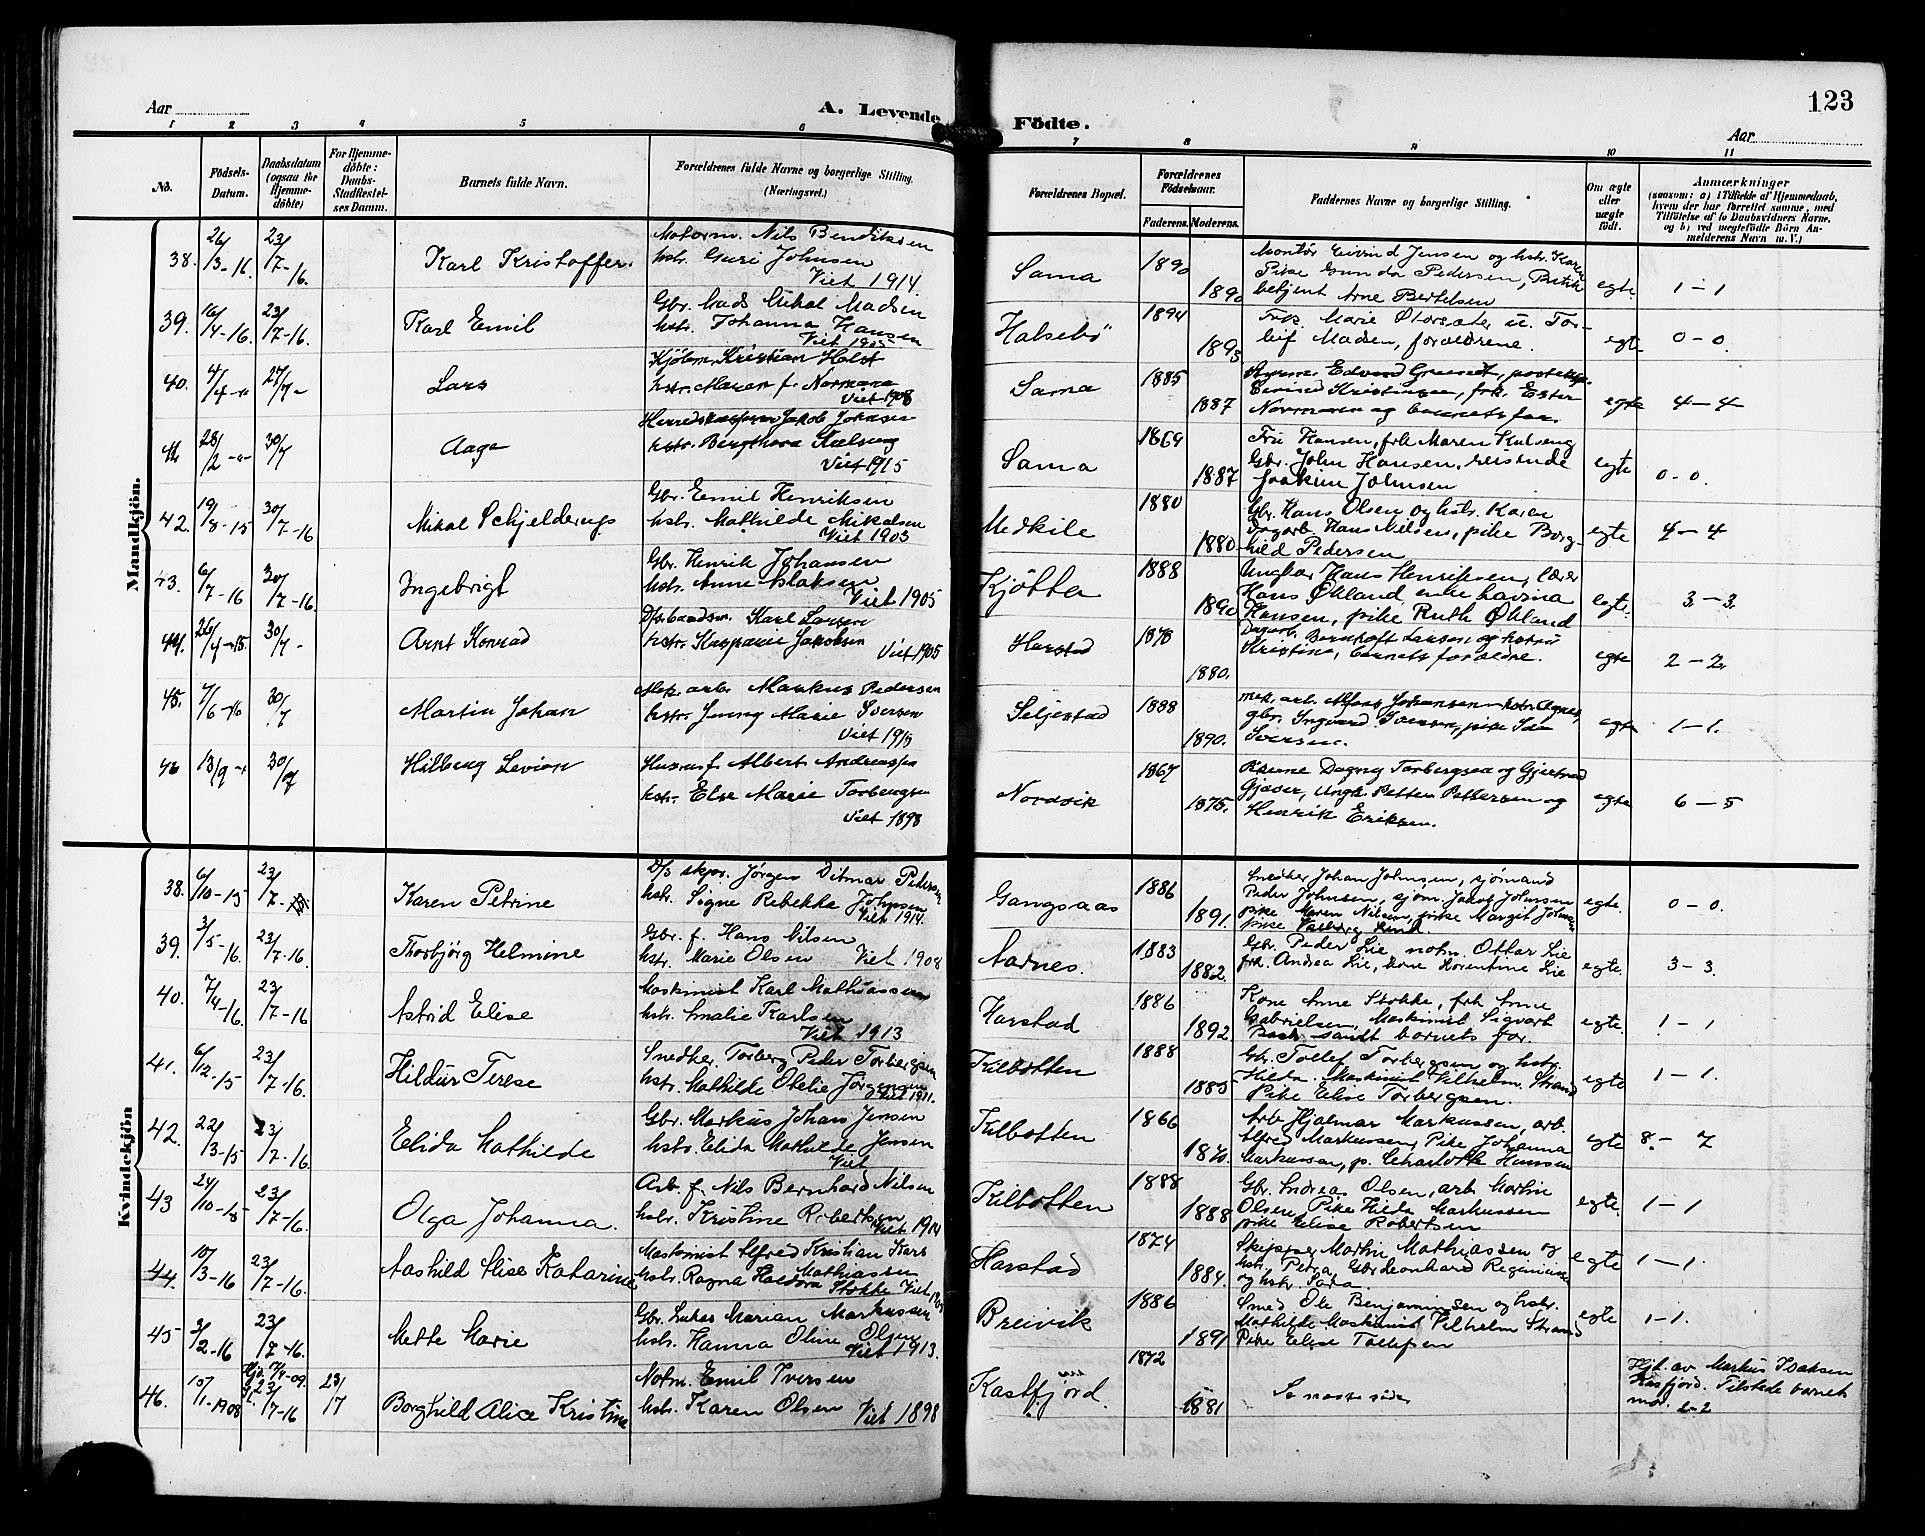 Aar
A. Levende
Födte.
123
Aar
1 2 3 4 5 6 7 8 9 10 11
No.
Födsels-
Datum.
Daabsdatum
(ogsaa for
Hjemme-
döbte)
For Hjemme-
döbte:
Daabs-
Stadfæstel-
ses Datum.
Barnets fulde Navn.
Forældrenes fulde Navne og borgerlige Stilling.
(Næringsvei.)
Forældrenes Bopæl.
Forældrenes
Födselsaar.
Faderens. Moderens.
Faddernes Navne og borgerlige Stilling.
Om ægte
eller
uægte
födt.
Anmærkninger
(saasom: a) i Tilfælde af Hjemmedaab,
hvem der har forrettet samme, med
Tilföielse af to Daabsvidners Navne,
og b) ved uægtefödte Börn An-
melderens Navn m. V.)
Mandkjön.
38. 26/3-16. 23/7-16. Karl Kristoffer.
Motorm. Nils Bendiksen
hstr. Guri Johnsen
Viet 1914.
Sama 1890 1890
Montör Eivind Jensen og hstr. Karen
Pike Gunda Pedersen, Butik
betjent Arne Bertelsen
egte. 1-1
39. 16/4-16. 23/7-16. Karl Emil
Gbr. Mads Mikal Madsen
hstr. Johanna Hansen
Viet 1905
Halsebö 1894 1893
Frk. Marie
leif Madsen, foreldrene.
egt. 0-0.
40. 4/4 27/7- Lars
Kjöbm. Kristian Holst
hstr. Maren f. Normann
Viet 1908
Sama 1885 1887
Eivind Kristensen, frk. Ester
Normann og barnets far
egte 4-4
41. 28/2 30/7 Aage
Jakob Johnsen
hstr. Bergthora
Viet 1915
Sama 1869 1887
Fru Hansen, frk Maren
Gbr. John Hansen, reisende
Joakim Johnsen
egte 0-0.
42. 19/8-15 30/7-16 Mikal Schjelderup
Gbr. Emil Henriksen
hstr. Mathilde Mikalsen
Viet 1903
Medkile 1880 1880
Gbr. Hans Olsen og hstr. Karen
Dagarb. Hans Nilsen, pike Borg-
hild Pedersen
egte 4-4
43. 6/7-16 30/7-16. Ingebrigt
Gbr. Henrik Johansen
hstr. Anne Islaksen
Viet 1905
Kjötta 1888 1890
Ungkar Hans Henriksen, lærer
Hans Økland, enke Lavina
Hansen, pike Ruth Økland
egte. 3-3.
44. 26/4-15. 30/7- Arnt Konrad
Karl Larsen
hstr. Kaspara Jakobsen
Viet 1905
Harstad 1878 1880.
Dagarb. Larsen og hustru
Kristine, barnets foreldre.
egte 2-2
45. 7/6-16 30/7 Martin Johan
Mek. arb. Markus Pedersen
hstr. Jenny Marie Iversen
Viet 1915
Seljestad 1888 1890.
mek. arb. Alfons Johansen hstr. Agnes,
gbr. Ingvard Iversen, pike Ida
Iversen.
egte 1-1.
46 13/9 30/7 Hilberg Levion
Husm. f. Albert Andreassen
hstr. Else Marie Torbergsen
Viet 1898
Nordvik 1867 1875.
Pikerne Dagny Torbergsen og Gjertrud
Gjæver, Ungk. Petter Pettersen og
Henrik Eriksen.
egte 6-5
Kvindekjön
38. 6/10-15 23/7 Karen Petrine
D/s skpr. Jörgen Ditmar Pedersen
hstr. Signe Rebekka Johnsen
Viet 1914.
Gangsaas 1886 1891.
Snedker Johan Johnsen, sjömand
Peder Johnsen, sjöm. Jakob Johnsen
pike Maren Nilsen, pike Margit Johnsen
pike Valborg
egte. 0-0.
39. 3/5-16. 23/7-16. Thorbjörg Helmine
Gbr. f. Hans Nilsen
hstr. Marie Olsen Viet 1908
Aarnes. 1883 1882.
Gbr. Peder Lie notm. Ottar Lie
frk. Andrea Lie, Kone Horentine Lie
egte. 3-3.
40. 7/4-16. 23/7-16 Astrid Elise
Maskinist Karl Mathiassen
hstr. Amalie Karlsen
Viet 1913
Harstad 1886 1892.
Kone Anne Stokke, frk Anna
Gabrielsen, Maskinist Sigvart
samt barnets far.
egte. 1-1
41. 6/12-15 23/7-16. Hildur Terese
Snedker Torberg Peder Torbergsen
hstr. Mathilde Otelie Jörgensen
Viet 1911.
Kilbotten 1888 1885
Gbr. Tollef Torbergsen og hstr.
Hilda. Maskinist Vilhelm Strand
Pike Elise Torbergsen.
egte 1-1.
42. 22/3-15 23/7-16. Elida Mathilde
Gbr. Markus Johans Jensen
hstr. Elida Mathilde Jensen
Viet
Kilbotten 1866 1870.
Arb. Hjalmar Markussen, arb.
Alfred Markussen, Pike Johanna
Markussen, p. Charlotte Hansen
egte 8-7
43 24/10-15 23/7-16. Olga Johanna.
Arb. f. Nils Bernhard Nilsen
hstr. Kristine Robertsen
Viet 1914
Kilbotten 1888 1888
Gbr. Andreas Olsen, arb. Martin
Olsen, Pike Hilda Markussen
pike Elise Robertsen
egte 1-1
44. 10/3-16 23/7-16. Aashild Elise Katarine
Maskinist Alfred Kristian Kars
Mathiassen
hstr. Ragna Haldora Stokke Viet
Harstad 1874 1884.
Skipper Martin Mathiassen og
hstr. Petra, Gbr. Leonhard Reginiusen
og hstr. Sara
egte 1-1.
45 3/2-16 23/7-16. Mette Marie
Gbr. Lukas Marian Markussen
hstr. Hanna Oline Olsen
Viet 1913.
Breivik 1886 1891
Smed Ole Benjaminsen og hstr.
Mathilde Maskinist Vilhelm Strand
Pike Elise Tollefsen
egte 1-1.
46. 10/1-1908 Hjd. 7/4-09. 23/7-16 23/17 Borghild Alice Kristine
Notm. Emil Iversen
hstr. Karen Olsen Viet 1898
Kastfjord. 1872 1881
Se næste side
Hjd. av Markus Isaksen
Kasfjord. Tilstede barnets
mor. 2-2